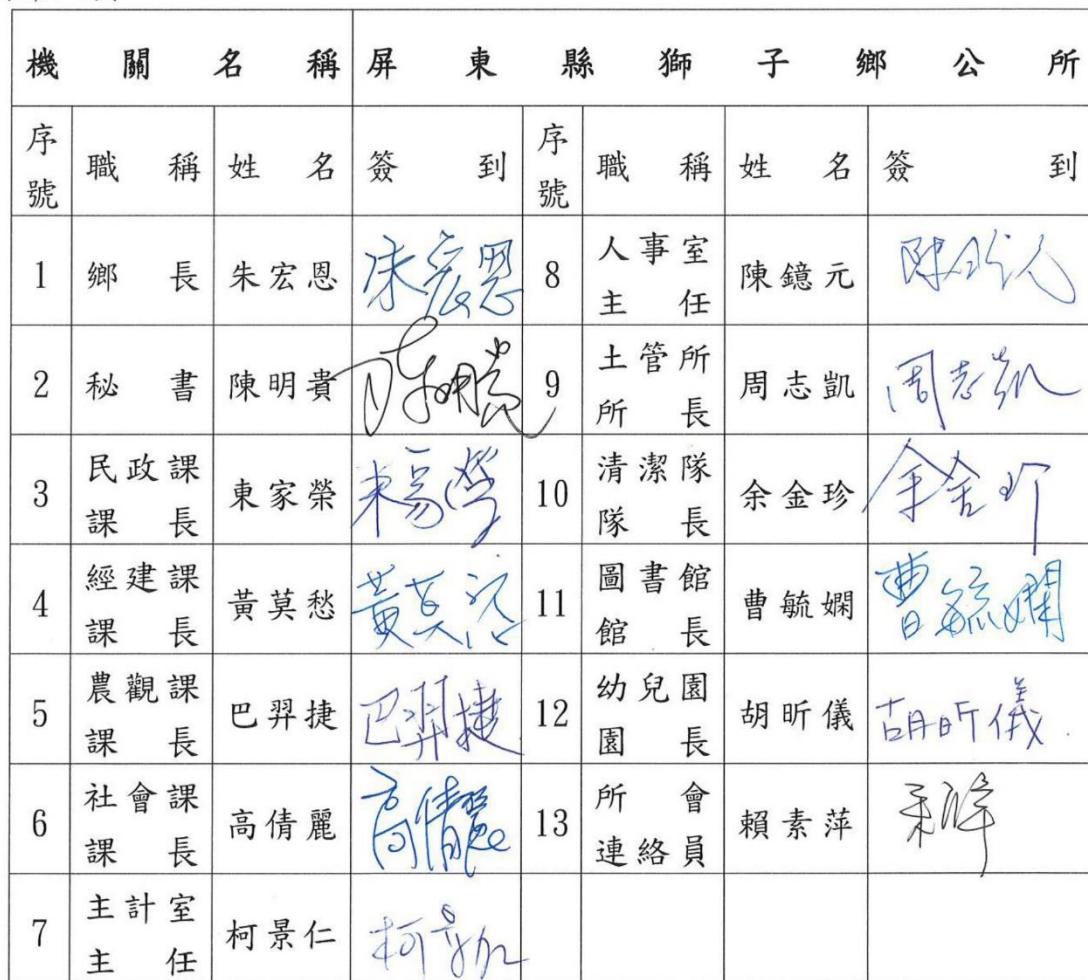 機關名稱 屏東縣獅子鄉公所
序號 職稱 姓名 簽到 序號 職稱 姓名 簽到
1 鄉長 朱宏恩 朱宏恩 8 人事室主任 陳鐿元
2 秘書 陳明貴 9 土管所所長 周志凱 周志凱
3 民政課課長 東家榮 10 清潔隊隊長 余金珍
4 經建課課長 黃莫愁 11 圖書館館長 曹毓嫻 曹毓嫻
5 農觀課課長 巴羿捷 巴羿捷 12 幼兒園園長 胡昕儀 胡昕儀
6 社會課課長 高倩麗 高倩麗 13 所會連絡員 賴素萍
7 主計室主任 柯景仁 柯景仁